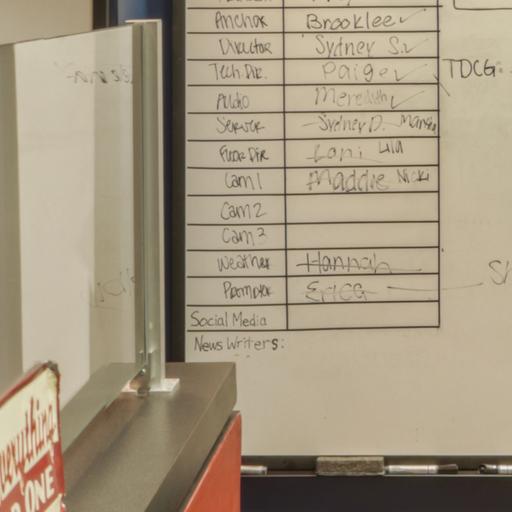 Anchor Brooklee ✓
Director Sydney S. ✓
Tech. Dir. Paige ✓ TDCG:
Audio Meredith ✓
Server Sydney D.
Floor Dir Loni Lila
Cam 1 Maddie Nicki
Cam 2
Cam 3
Weather Hannah
Prompter Erica
Social Media
News Writers:
everything
ONE